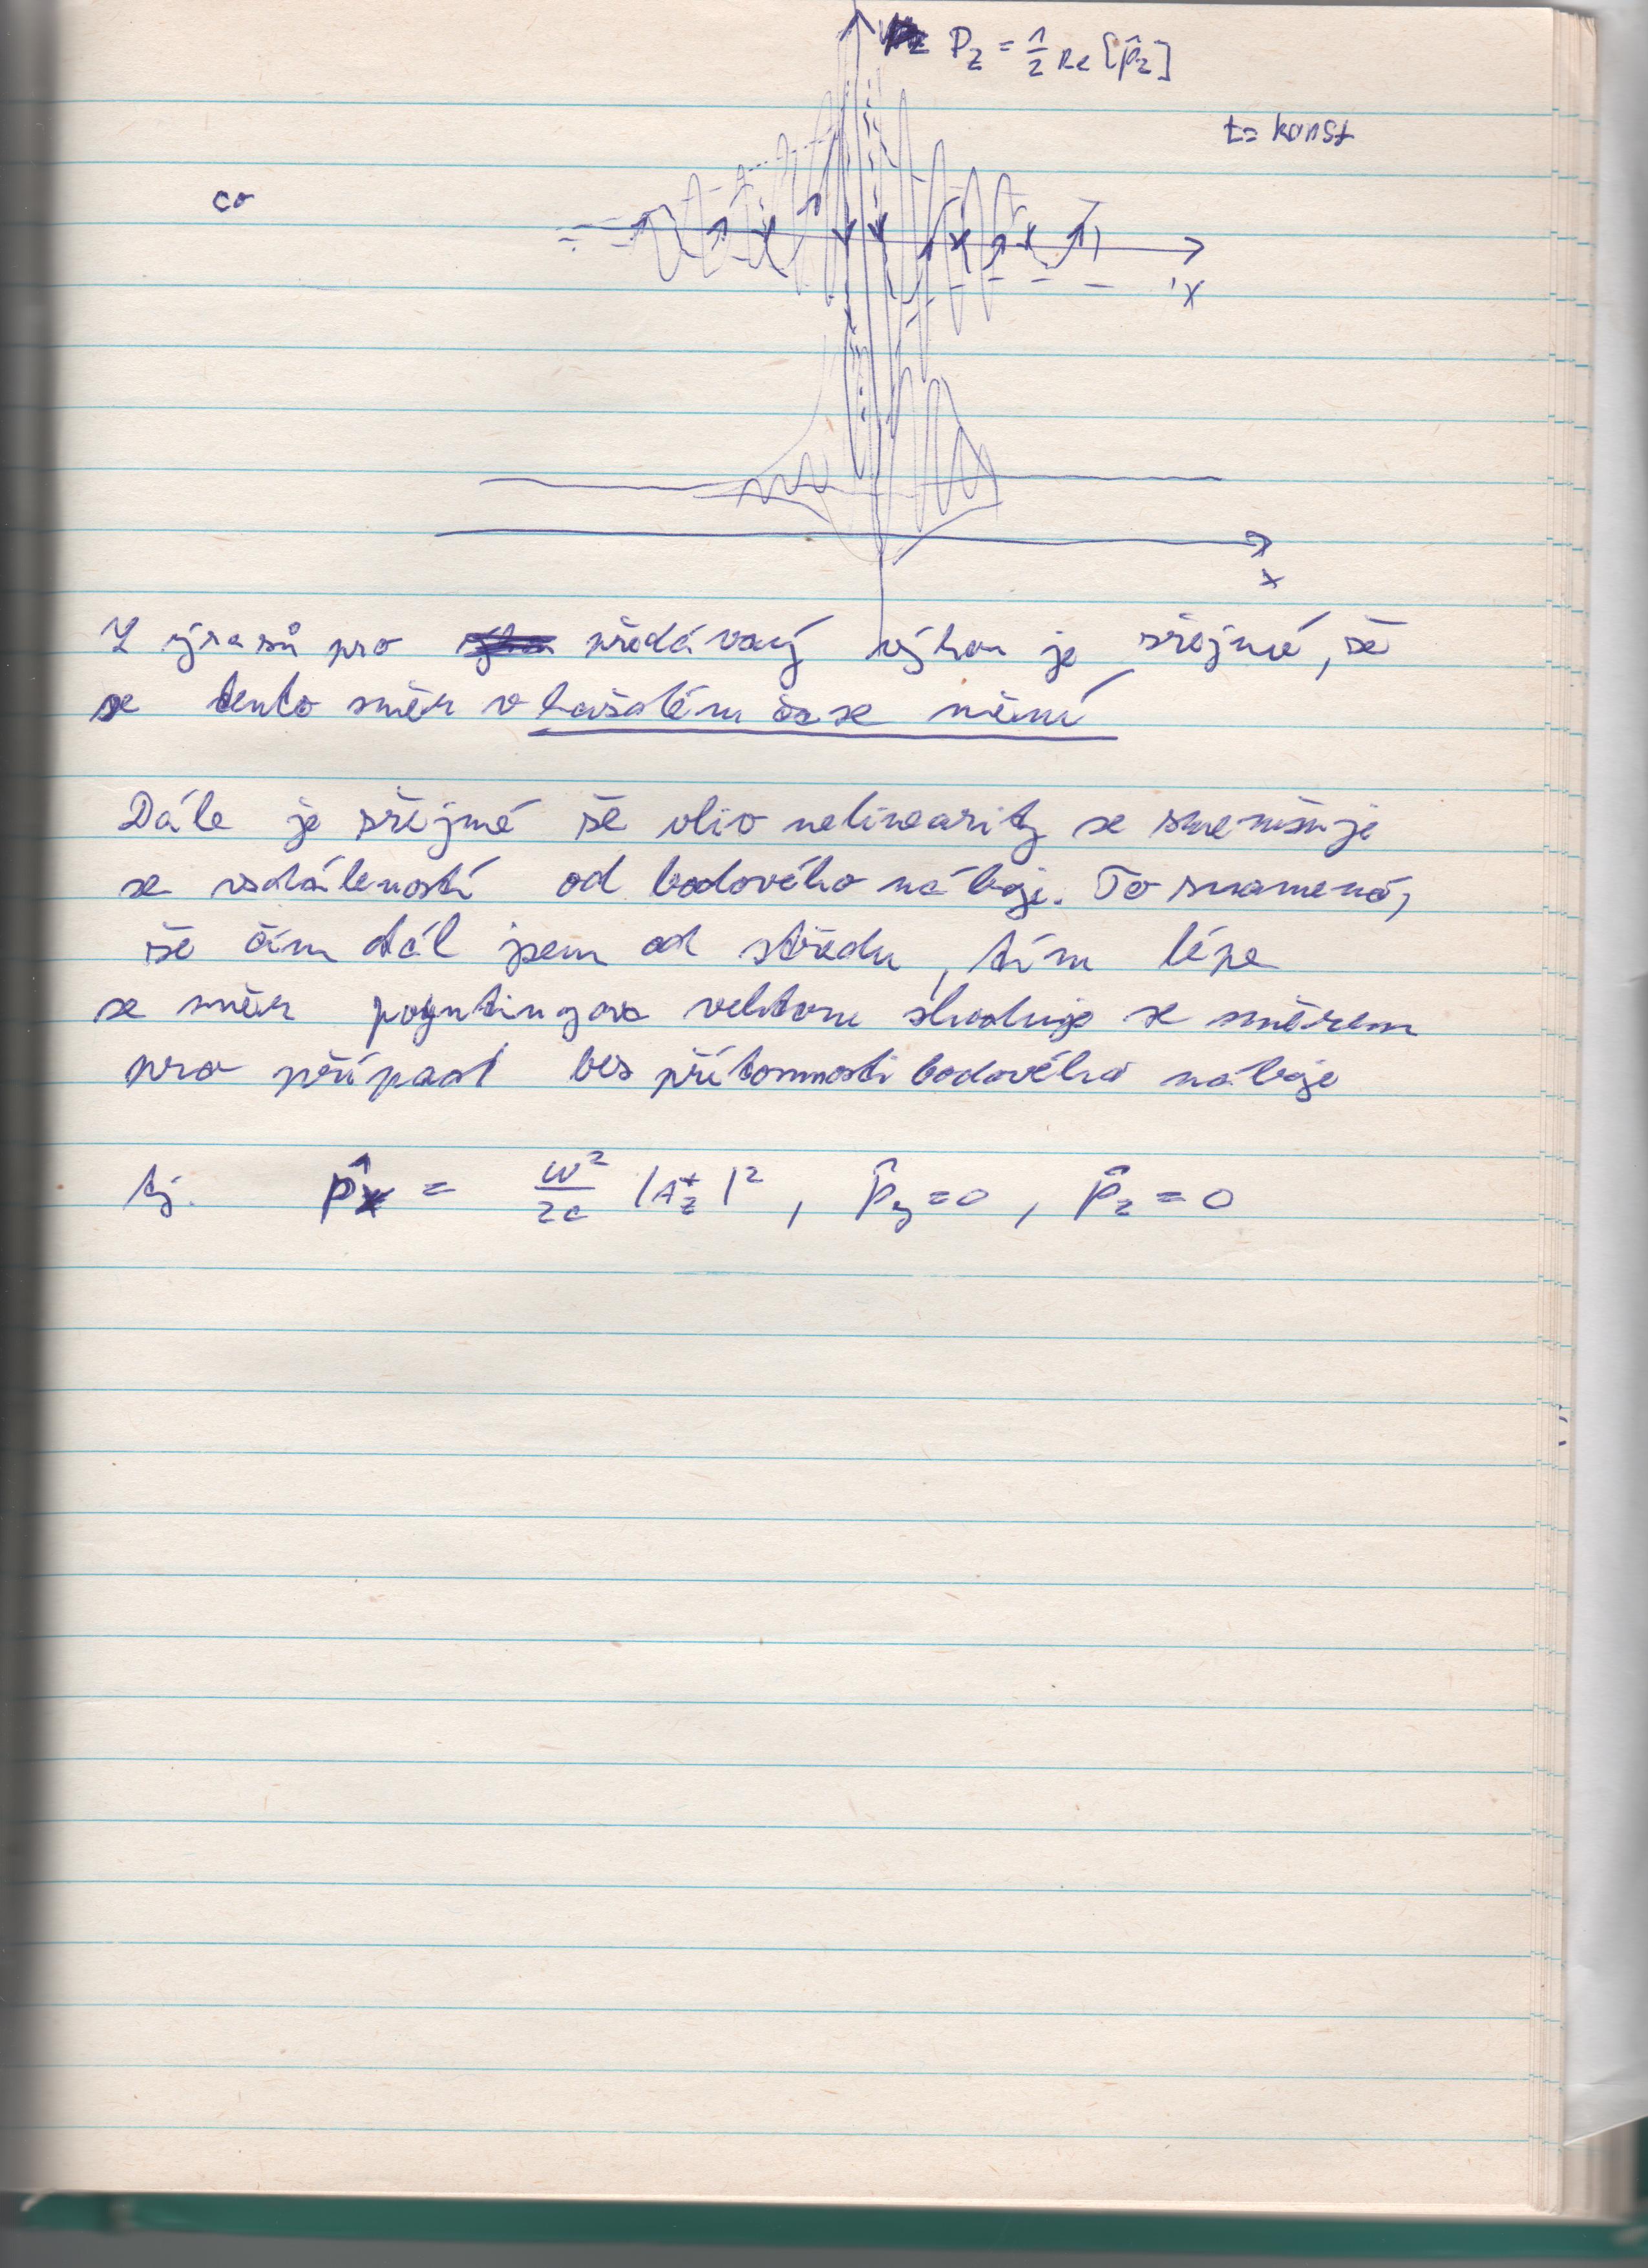 P_z = 1/2 Re [p̂_z]
t = konst
co
x
x
Z výrazů pro předávaný výkon je zřejmé, že
se tento směr v každém čase mění
Dále je zřejmé že vliv nelinearity se zmenšuje
se vzdáleností od bodového náboje. To znamená,
že čím dál jsem od středu, tím lépe
se směr poyntingova vektoru shoduje se směrem
pro případ bez přítomnosti bodového náboje
tj. p̂_x = ω²/2c |A_z⁺|², p̂_y = 0, p̂_z = 0